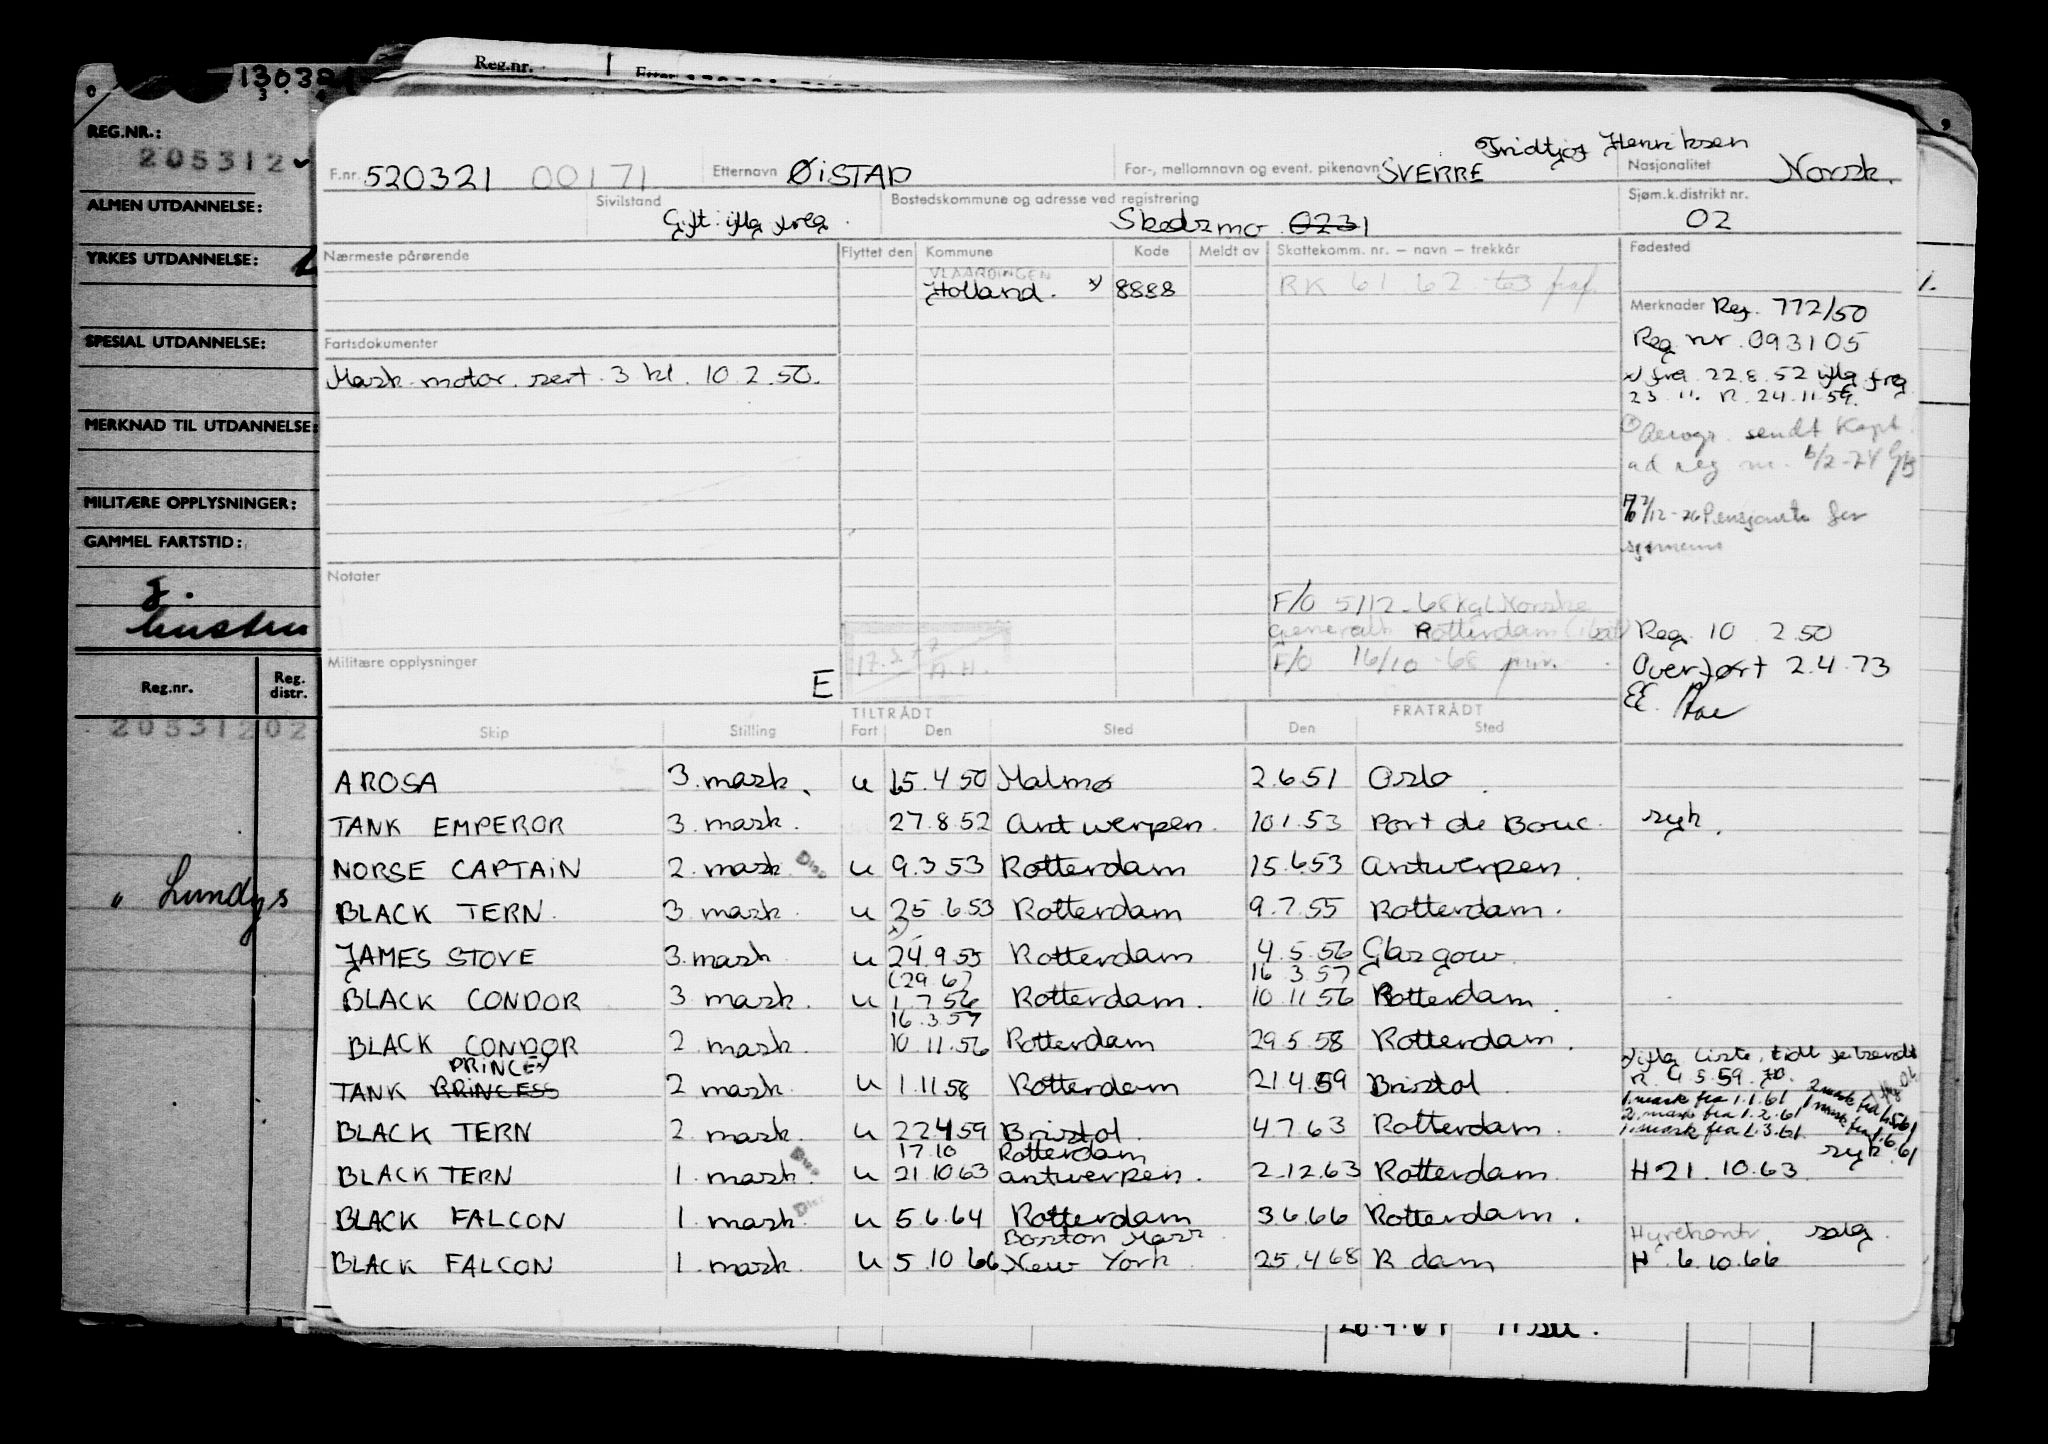 130321
Reg.nr.
REG.NR.:
205312
ALMEN UTDANNELSE:
YRKES UTDANNELSE:
SPESIAL UTDANNELSE:
MERKNAD TIL UTDANNELSE:
MILITÆRE OPPLYSNINGER:
GAMMEL FARTSTID:
Reg.nr. Reg. distr.
20531202
" Lundgs
Fridtjof Henriksen
F.nr. 520321 00171 Etternavn ØISTAD For-, mellomnavn og event. pikenavn SVERRE Nasjonalitet Norsk.
Sivilstand Gift iflg frlg. Bostedskommune og adresse ved registrering Skedsmo 0231 Sjøm.k.distrikt nr. 02
Nærmeste pårørende Flyttet den Kommune Kode Meldt av Skattekomm. nr. – navn – trekkår Fødested
VLAARDINGEN
Holland. x) 8888 RK 61 62 63
Merknader Reg. 772/50
Reg nr. 093105
x) frg. 22.8.52 iflg frg
23.11. R. 24.11.59.
Aerogr. sendt Kapt.
ad reg nr. 6/2-74
Fartsdokumenter
Mask. motor. sert. 3 kl. 10.2.50.
7/12-76 Pensjonstr. for
sjømenn
Notater
F/O 5/12-68 Kgl Norske
generalk Rotterdam
F/O 16/10-68 priv.
17.
A.H.
Reg. 10 2.50
Overført 2.4.73
EE.
Militære opplysninger E
TILTRÅDT FRATRÅDT
Skip Stilling Fart Den Sted Den Sted
AROSA 3. mask. u 15.4.50 Malmø 2.6.51 Oslo.
TANK EMPEROR 3. mask. 27.8.52 Antwerpen. 10.1.53 Port de Bouc. syk.
NORSE CAPTAIN 2. mask u 9.3.53 Rotterdam 15.6.53 Antwerpen.
BLACK TERN. 3. mask. u 25.6.53 Rotterdam 9.7.55 Rotterdam.
x)
JAMES STOVE 3. mask u 24.9.55 Rotterdam 4.5.56 Glasgow.
(29.6) 16.3.57
BLACK CONDOR 3. mask. u 1.7.56 Rotterdam. 10.11.56 Rotterdam.
16.3.57
BLACK CONDOR 2. mask. 10.11.56 Rotterdam 29.5.58 Rotterdam.
PRINCE x) iflg liste, tidl
TANK PRINCESS 2. mask. u 1.11.58 Rotterdam 21.4.59 Bristol R. 4.5.59.
1. mask fra 1.1.61 2 mask fra 1.5.61
2. mask fra 1.2.61 1 mask fra 1.6.61
BLACK TERN 2. mask. u 22.4.59 Bristol. 4.7.63 Rotterdam. 1. mask fra 1.3.61.
17.10 Rotterdam syk.
BLACK TERN 1. mask. u 21.10.63 Antwerpen. 2.12.63 Rotterdam. H 21.10.63.
BLACK FALCON 1. mask. u 5.6.64 Rotterdam 3.6.66 Rotterdam.
Boston Mass. Hyrekontr. salg.
BLACK FALCON 1. mask. u 5.10.66 New York 25.4.68 R dam H. 6.10.66